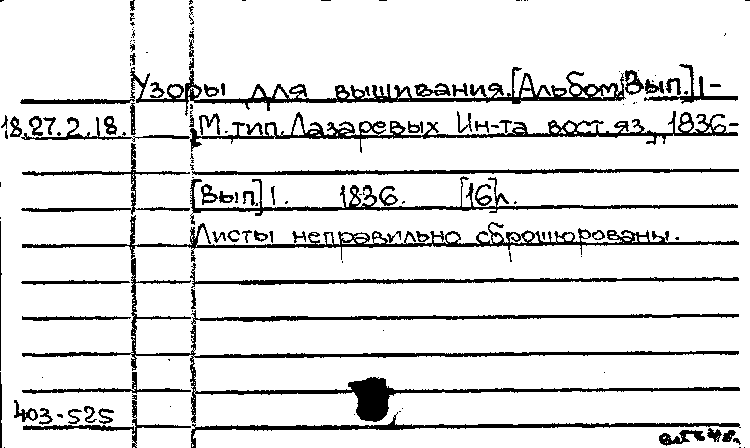 Узоры для вышивания.[Альбом][Вып.]1-
18.27.2.18. М. тип. Лазаревых Ин-та вост. яз., 1836-
[Вып.]1. 1836. [16]л.
Листы неправильно сброшюрованы.
403-525